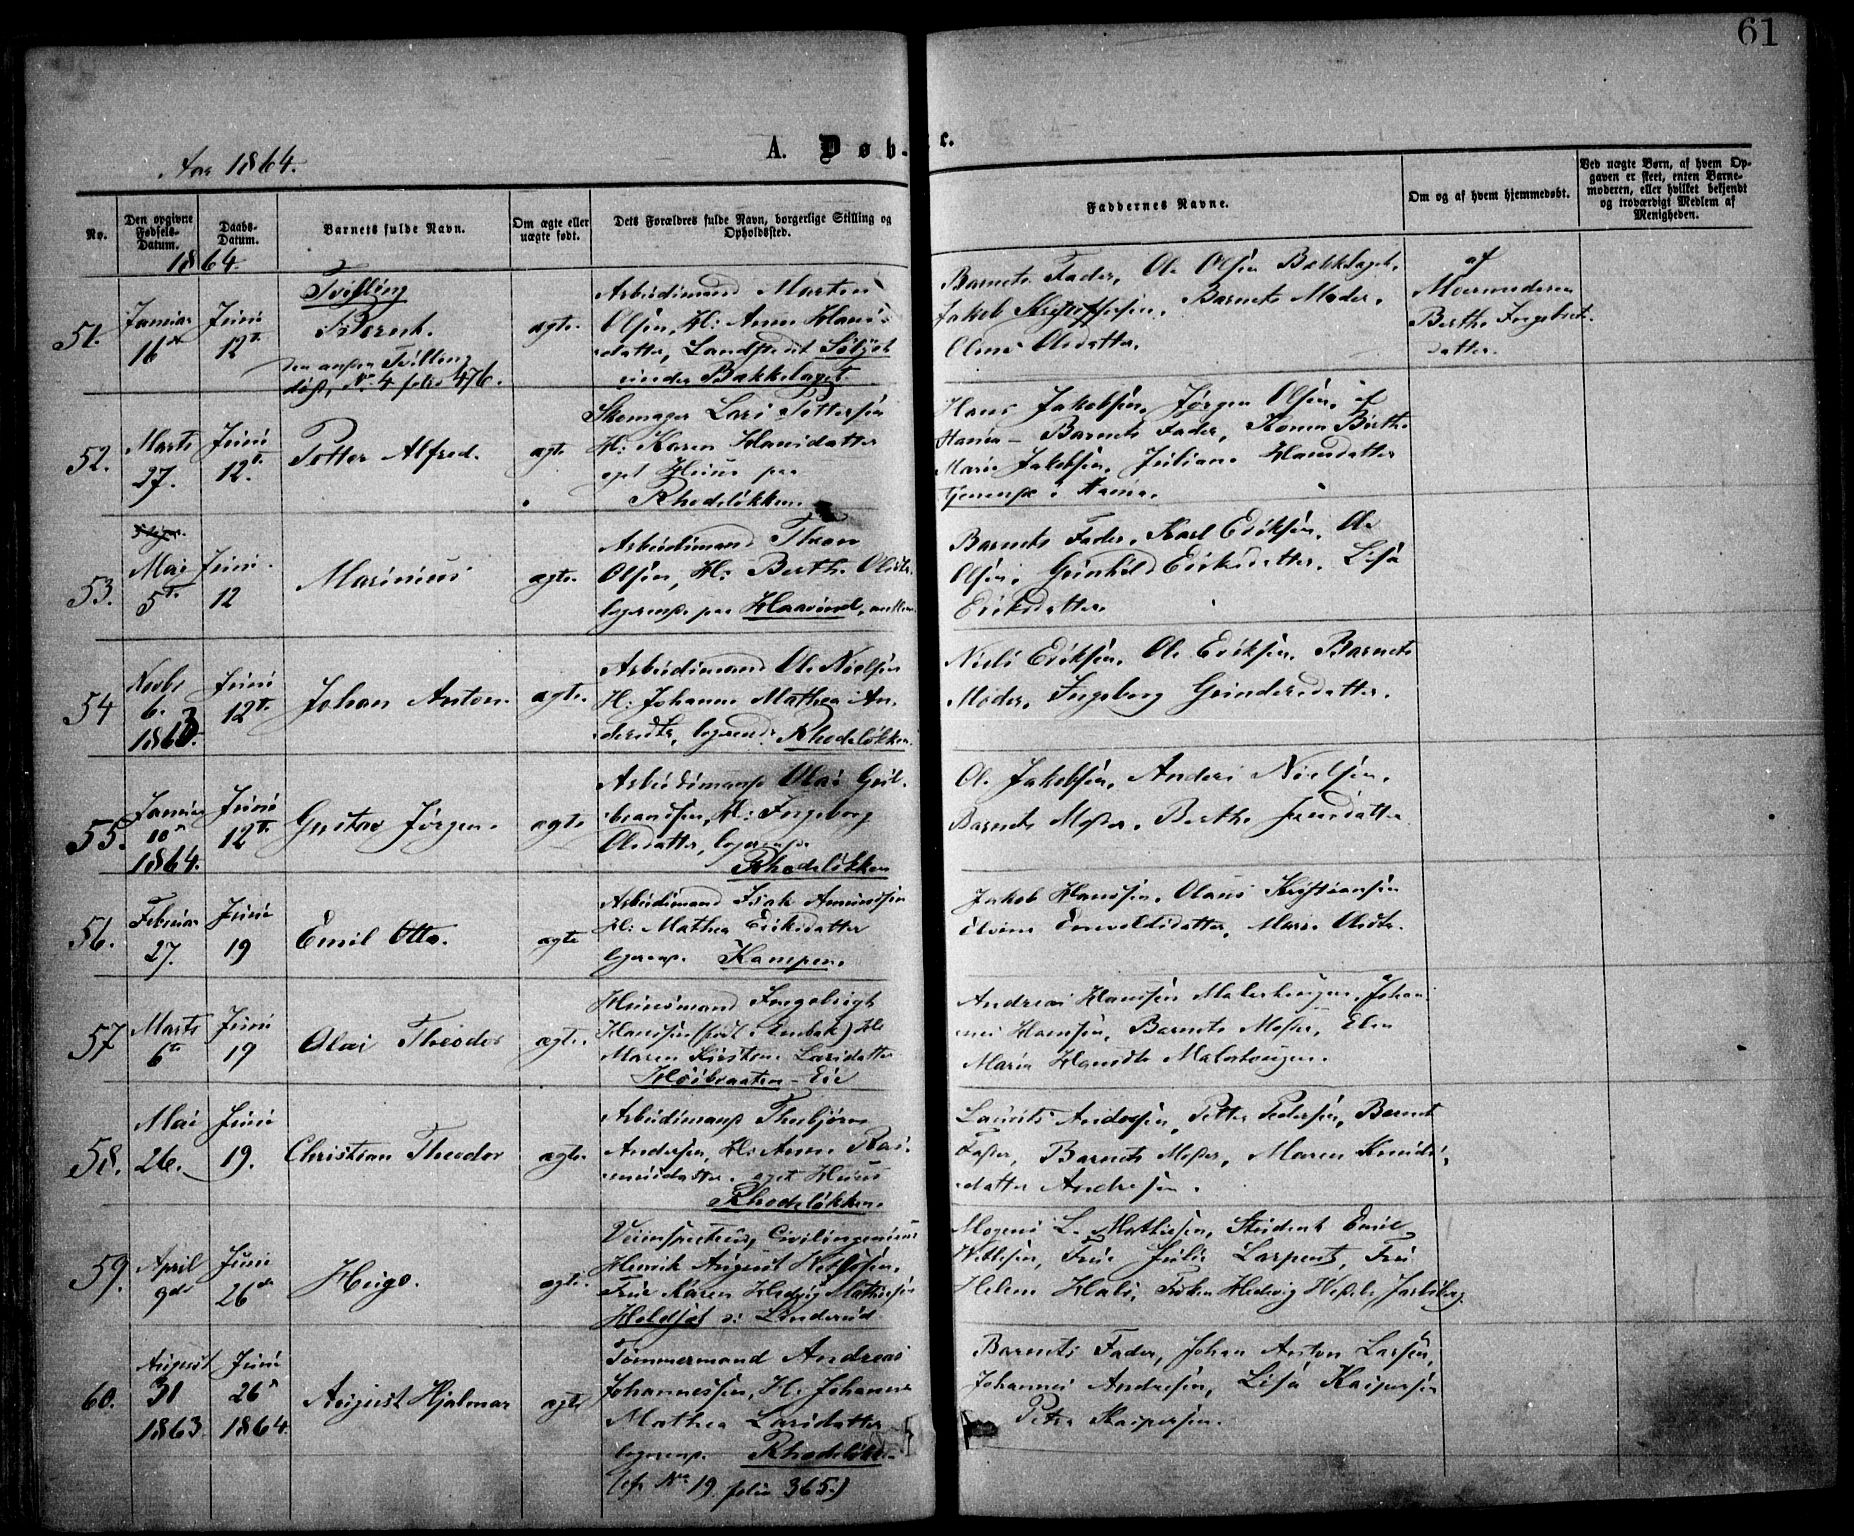 61
Aar 1864.
A. Døbte.
No.
Den opgivne
Fødsels-
Datum.
Daabs-
Datum.
Barnets fulde Navn.
Om ægte eller
uægte født.
Dets Forældres fulde Navn, borgerlige Stilling og
Opholdssted.
Faddernes Navne.
Om og af hvem hjemmedøbt.
Ved uægte Børn, af hvem Op-
gaven er skeet, enten Barne-
moderen, eller hvilket bekjendt
og troværdigt Medlem af
Menigheden.
1864.
51.
Januar
16de
Juni
12te
Tvilling
Bernt.
den anden Tvilling
død, No 4 folio 476.
ægte.
Arbeidsmand Marten
Olsen, H: Anne Hans-
datter, Landstedet
under Bakkelaget.
Barnets Fader, Ole Olsen Bækkelaget,
Jakob Kristoffersen, Barnets Moder,
Oline Olsdatter.
af
Berthe Ingebret-
datter.
52.
Marts
27.
Juni
12te.
Petter Alfred.
ægte
Skomager Lars Pettersen
H: Karen Hansdatter
eget Huus paa
Rhodeløkken.
Hans Jakobsen, Jørgen Olsen, af
Barnets Fader, Konen Berthe
Marie Jakobsen, Juliane Hansdatter
53.
Mai
5te
Juni
12
Marinius
ægte.
Arbeidsmand Thron
Olsen, H: Berthe Olsdtr.
logerende paa
Barnets Fader, Karl Eriksen, Ole
Olsen, Gunhild Eriksdatter, Lisa
Eriksdatter.
54
Novbr
6.
1863.
Juni
12te.
Johan Anton.
ægte.
Arbeidsmand Ole Nielsen
H: Johanne Mathea An-
dersdtr, logerende Rhodeløkken.
Niels Eriksen, Ole Eriksen, Barnets
Moder, Ingeborg Gundersdatter.
55.
Januar
10de
1864.
Juni
12te
Gustav Jørgen.
ægte
Arbeidsmand Olai Gul-
brandsen, H: Ingeborg
Olsdatter, logerende
Rhodeløkken
Ole Jakobsen, Anders Nielsen,
Barnets Moster, Berthe Jensdatter
56.
Februar
27.
Juni
19
Emil Otto.
ægte
Arbeidsmand Isak Amundsen
H: Mathea Eriksdatter
logerende Kampen.
Jakob Hansen, Olaus Kristiansen
Elvine Enevoldsdatter, Marie Olsdtr.
57
Marts
6te
Juni
19
Olai Theodor
ægte.
Huusmand Ingebrigt
Hansen (født i Enebak) H:
Maren Kirstine Larsdatter
Høibraaten-Eie
Andreas Hansen Malerhaugen, Johan-
nes Hansen, Barnets Moster, Elen
Marie Hansdtr Malerhaugen.
58.
Mai
26.
Juni
19.
Christian Theodor
ægte.
Arbeidsmand Thorbjørn
Andersen, H: Anne Ras-
musdatter, eget Huus
Rhodeløkken.
Laurits Andersen, Petter Pedersen, Barnets
Faster, Barnets Moster, Maren Knuds-
datter Andresen.
59.
April
9de
Juni
26de
Hugo.
ægte.
Veiinspecteur, Civilingenieur
Henrik August
Frue Karen Hedvig Mathiesen
Mogens L. Mathiesen, Student Emil
Frue Julie Larpent, Fru
Helene Frøken Hedvig
60.
August
31
1863.
Juni
26de
1864.
August Hjalmar
ægte
Tømmermand Andreas
Johannessen, H: Johanne
Mathea Larsdatter
logerende Rhodeløkken
(cfr No 19 folio 365.)
Barnets Fader, Johan Anton Larsen,
Johannes Andresen, Lisa Kaspersen
Petra Kaspersen.